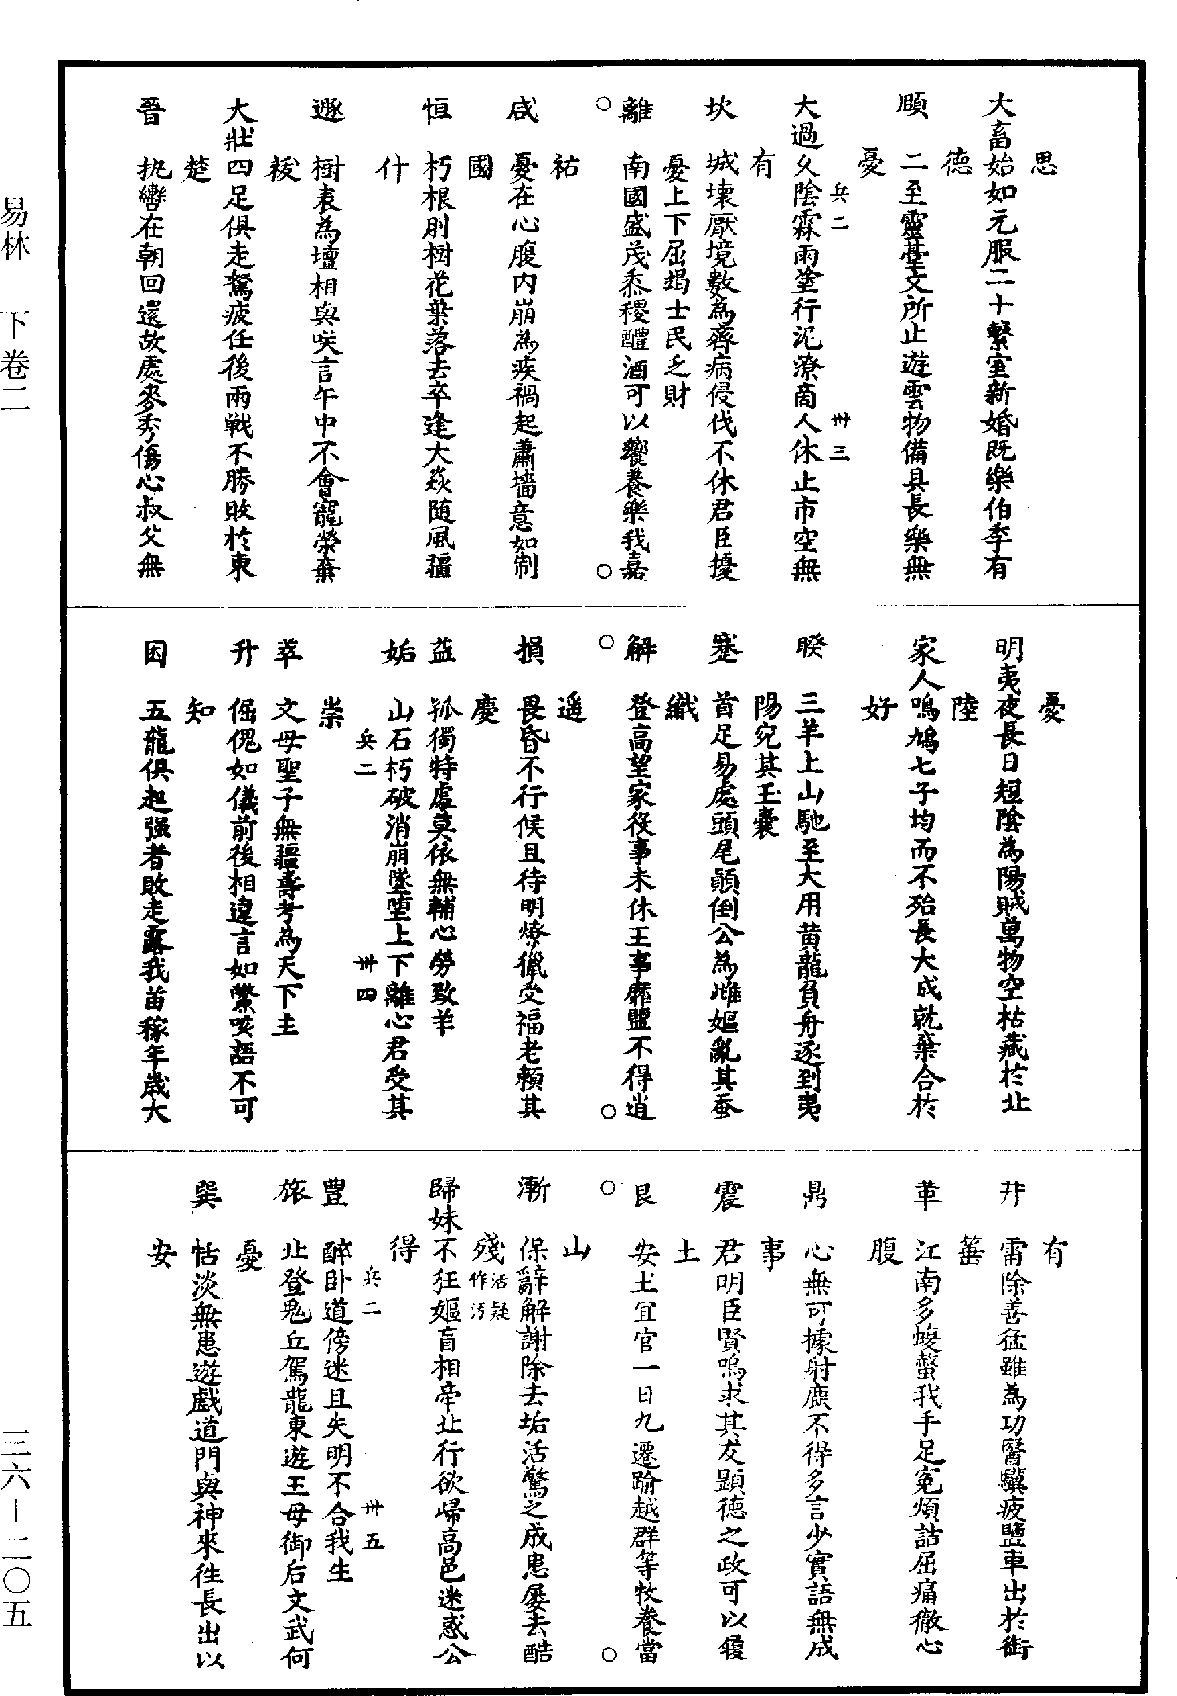 大畜始如元服二十繫室新婚既樂伯季有
思
德
頤　二至靈臺文所止遊雲物備具長樂無
憂
兵二　卅三
大過久陰霖雨塗行泥潦商人休止市空無
有
坎　城壞厭境數為齊病侵伐不休君臣擾
憂上下屈竭士民乏財
離　南國盛茂黍稷醴酒可以饗養樂我嘉
祐
咸　憂在心腹內崩為疾禍起蕭墻意如制
國
恒　朽根刖樹花葉落去卒逢大焱随風疆
什
遯　樹表為壇相與咲言午中不會寵榮棄
稜
大壯四足俱走駑疲任後兩戰不勝敗於東
楚
晉　執轡在朝回還故處麥秀傷心叔父無
憂
明夷夜長日短陰為陽賊萬物空枯藏於北
陸
家人鳴鳩七子均而不殆長大成就棄合於
好
睽　三羊上山馳至大用黄龍負舟遂到夷
陽宛其玉囊
蹇　首足易處頭尾顛倒公為雌嫗亂其蚕
織
解　登高望家役事未休王事靡盬不得逍
遥
損　畏昏不行候旦待明燎獵受福老賴其
慶
益　孤獨特處莫依無輔心勞致羊
姤　山石朽破消崩墜堕上下離心君受其
兵二　卅四
祟
萃　文母聖子無疆壽考為天下主
升　倔傀如儀前後相違言如鱉咳語不可
知
困　五龍俱起强者敗走露我苗稼年歲大
有
井　霜除善猛雖為功醫驥疲鹽車出於銜
箠
革　江南多蝮螫我手足寃煩詰屈痛徹心
腹
鼎　心無可據射麃不得多言少實語無成
事
震　君明臣賢鳴求其友顕德之政可以履
土
艮　安土宜官一日九遷踰越群等牧養當
山
漸　保辭解謝除去垢活驚之成患屡去酷
殘活疑作污
歸妹不狂嫗盲相牵北行欲歸高邑迷惑公
得
豐　醉卧道傍迷且失明不合我生
兵二　卅五
旅　北登鬼丘駕龍東遊王母御后文武何
憂
巽　恬淡無患遊戯道門與神來徃長出以
安
易林　下卷二
三六－二〇五